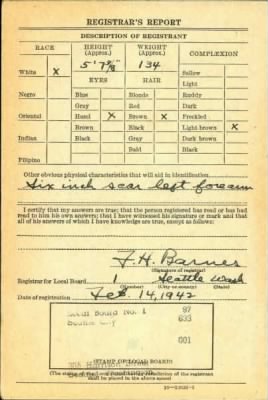 REGISTRAR'S REPORT
DESCRIPTION OF REGISTRANT
RACE HEIGHT (Approx.) WEIGHT (Approx.) COMPLEXION
White X 5' 7 134 Sallow
EYES HAIR Light
Negro Blue Blonde Ruddy
Gray Red Dark
Oriental Hazel X Brown X Freckled
Brown Black Light brown X
Indian Black Gray Dark brown
Bald Black
Filipino
Other obvious physical characteristics that will aid in identification
Six inch scar left forearm
I certify that my answers are true; that the person registered has read or has had
read to him his own answers; that I have witnessed his signature or mark and that
all of his answers of which I have knowledge are true, except as follows:
F. H. Barnes
(Signature of registrar)
Registrar for Local Board 1 Seattle Wash
(Number) (City or county) (State)
Date of registration Feb. 14, 1942
Local Board No. 1 97
033
001
(STAMP OF LOCAL BOARD)
(The stamp of the Local Board having jurisdiction of the registrant
shall be placed in the above space)